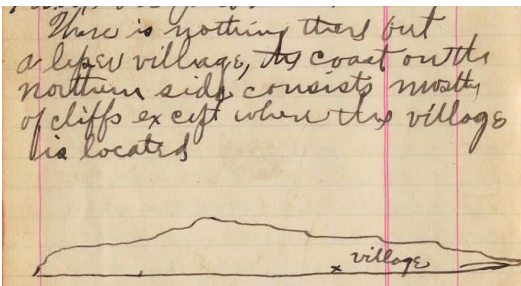 There is nothing there but
a leper village, the coast on the
northern side consists mostly
of cliffs except where the village
is located
x village